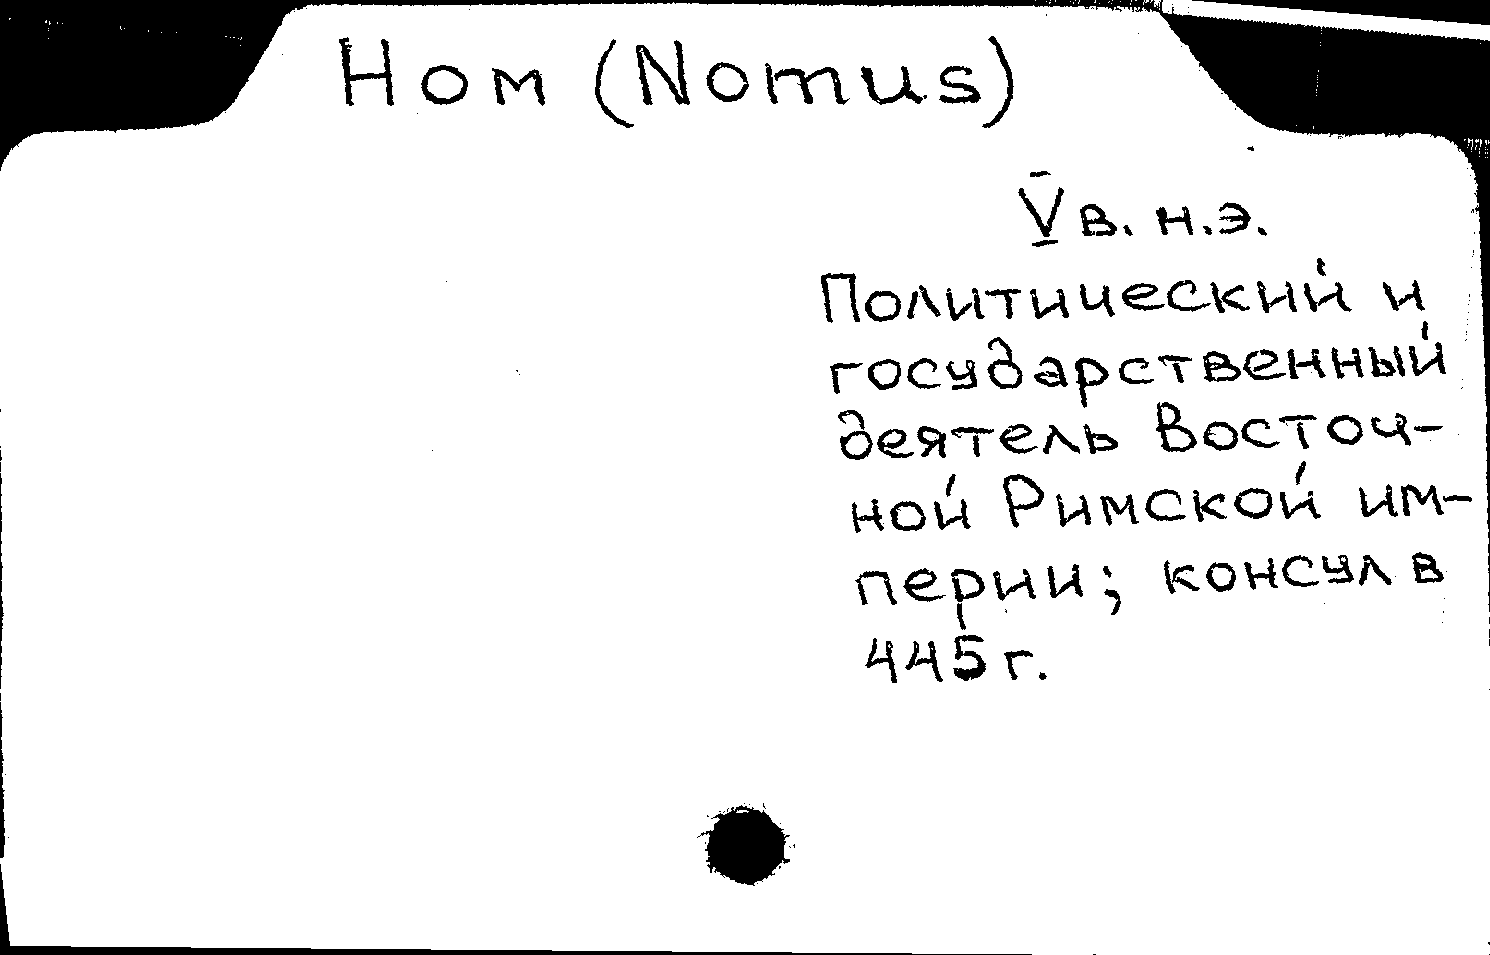 Ном (Nomus)
V в. н.э.
Политический и
государственный
деятель Восточ-
ной Римской им-
перии; консул в
445 г.